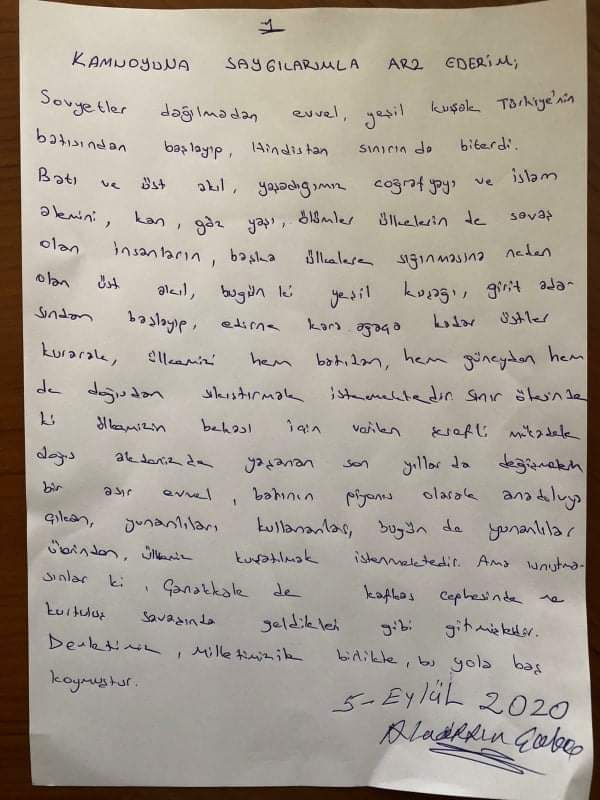 1
KAMUOYUNA SAYGILARIMLA ARZ EDERİM;
Sovyetler dağılmadan evvel, yeşil kuşak Türkiye'nin
batısından başlayıp, Hindistan sınırında biterdi.
Batı ve üst akıl, yaşadığımız coğrafyayı ve islam
alemini, kan, göz yaşı, ölümler ülkelerin de savaş
olan insanların, başka ülkelere sığınmasına neden
olan üst akıl, bugün ki yeşil kuşağı, girit ada-
sından başlayıp, edirne kara ağaça kadar üstler
kurarak, ülkemizi hem batıdan, hem güneyden hem
de doğudan sıkıştırmak istemektedir. Sınır ötesinde
ki ülkemizin bekası için verilen şerefli mücadele
doğu akdenizde yaşanan son yıllar da
bir asır evvel, batının piyonu olarak anadoluya
çıkan, yunanlıları kullananlar, bugün de yunanlılar
üzerinden, ülkemiz kuşatılmak istenmektedir. Ama unutma-
sınlar ki, Çanakkale de kafkas cephesinde ve
kurtuluş savaşında geldikleri gibi gitmişlerdir.
Devletimiz, milletimizle birlikte, bu yola baş
koymuştur.
5-Eylül 2020
Alaattin